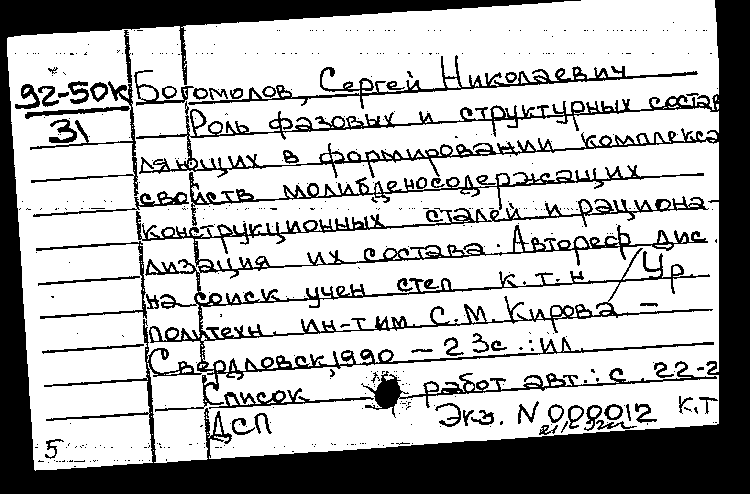 92-50К Богомолов, Сергей Николаевич
31 Роль фазовых и структурных состав
ляющих в формировании комплекса
свойств молибденосодержащих
конструкционных сталей и рациона-
лизация их состава: Автореф. дис.
на соиск. учен степ к.т.н. / Ур.
политехн. ин-т им. С.М. Кирова –
Свердловск, 1990 – 23с.: ил.
Список работ авт.: с. 22-2
ДСП Экз. N 000012 к.т
5